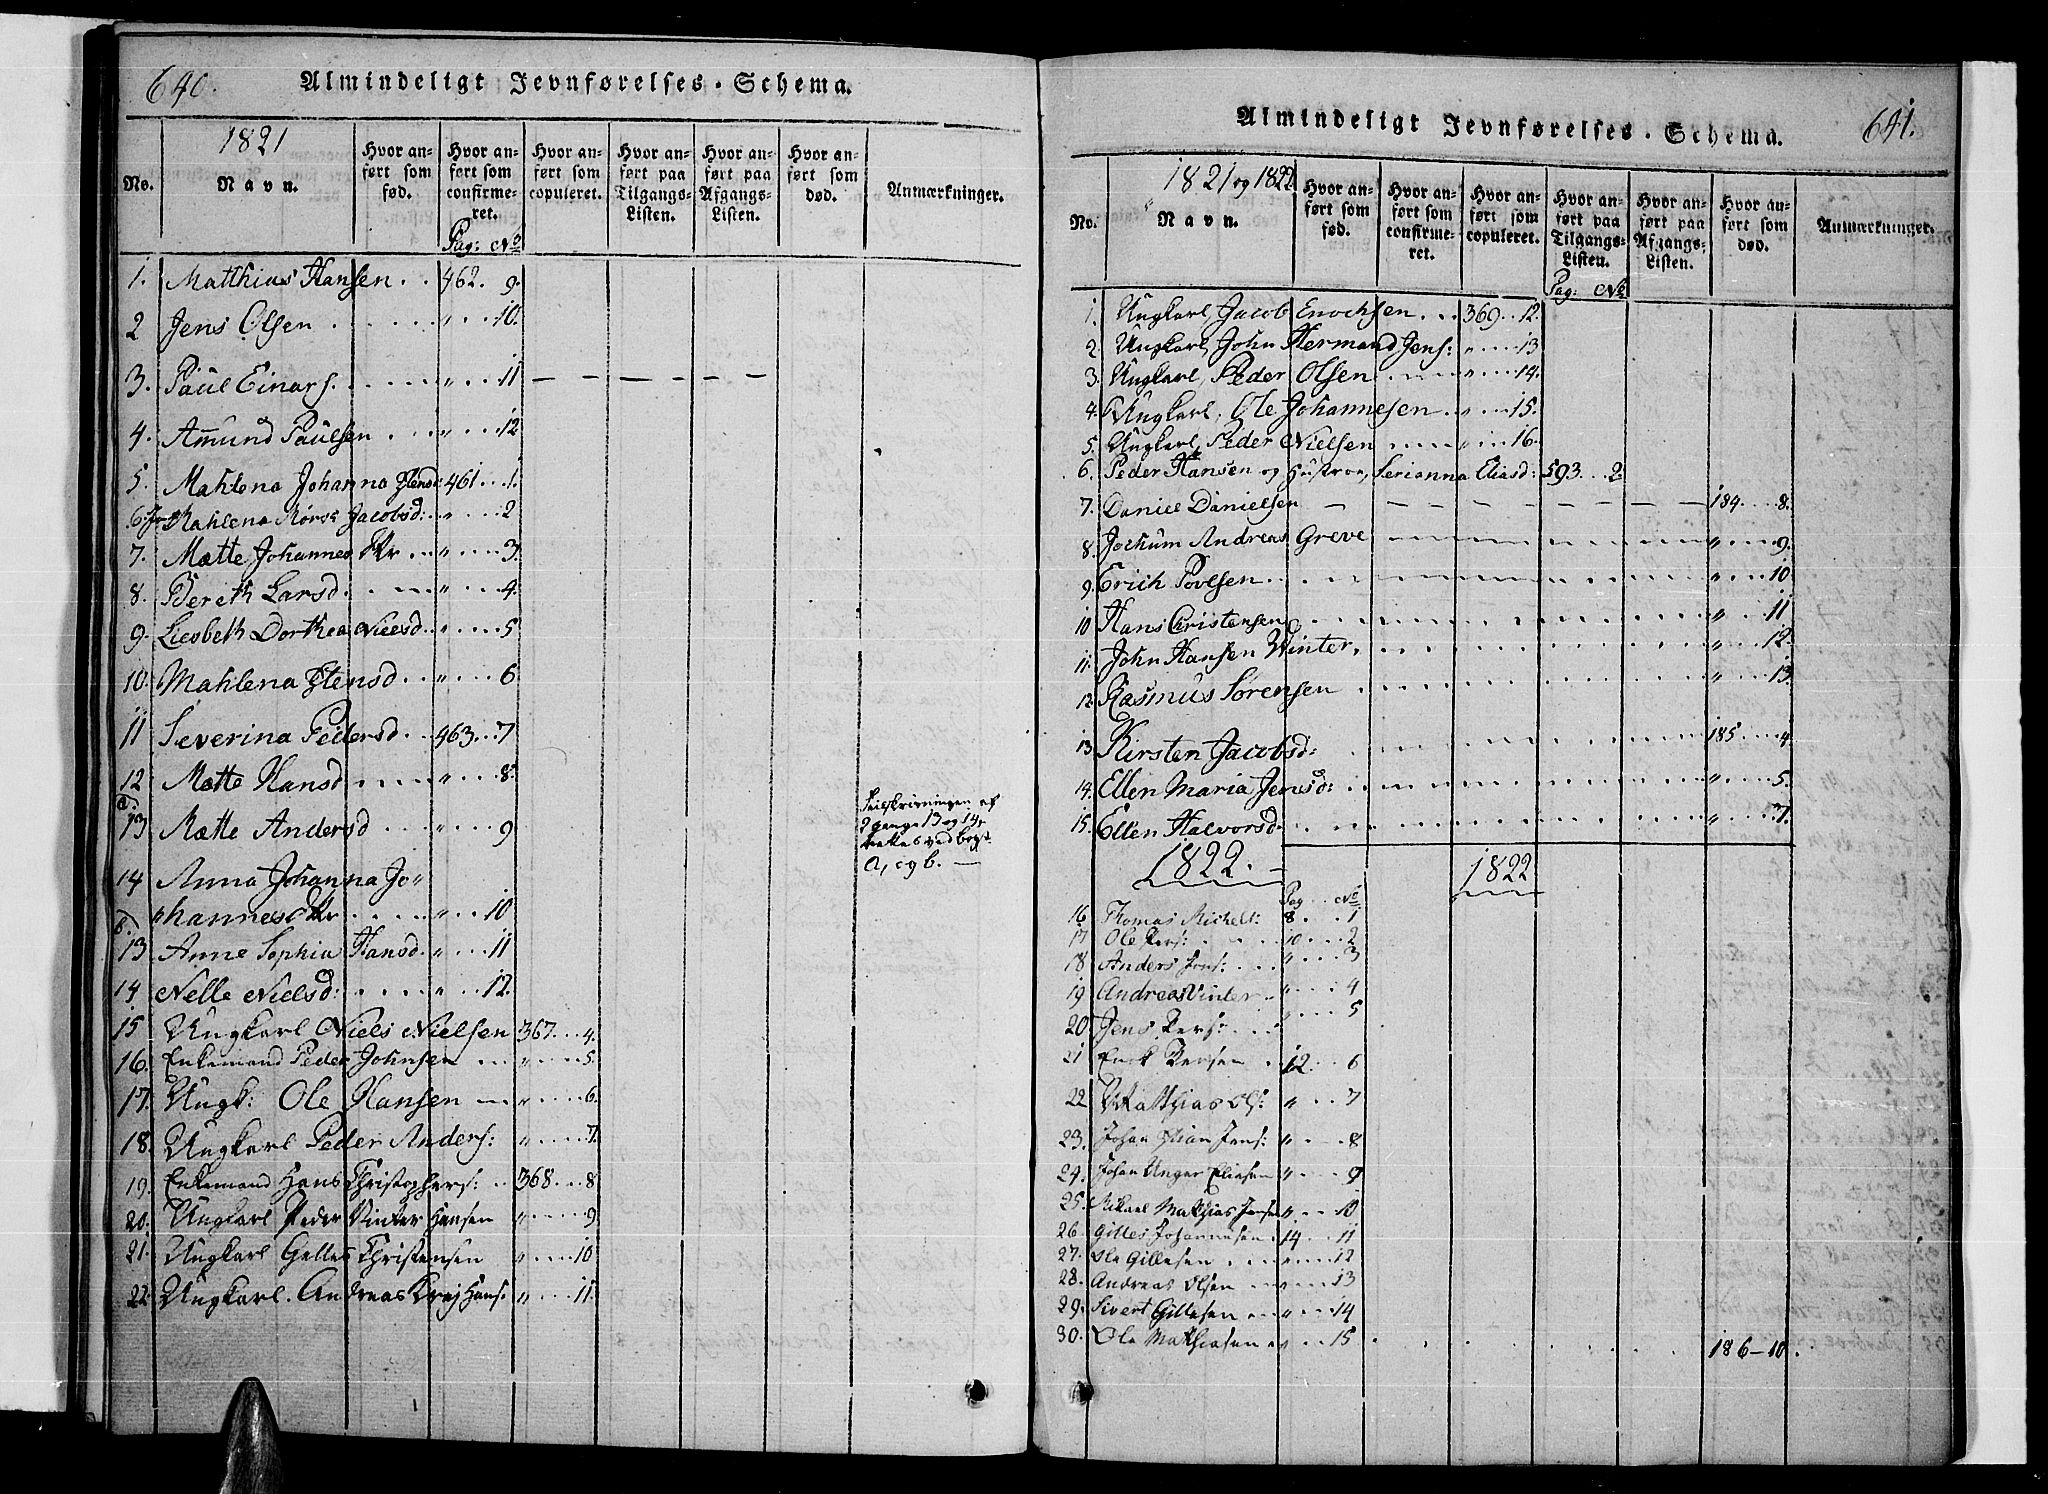 640.
Almindeligt Jevnførelses-Schema.
1821
No.
Navn.
Hvor anført som fød.
Hvor anført som confirmeret.
Hvor anført som copuleret.
Hvor anført paa Tilgangs-Listen.
Hvor anført paa Afgangs-Listen.
Hvor anført som død.
Anmærkninger.
Pag: No
1. Matthias Hansen . . 462. 9.
2 Jens Olsen . . . . . " . . 10.
3. Paul Einars. . . . . " . . 11 — — — — — —
4. Amund Paulsen . . . " . . 12
5. Mahlena Johanna Stensd: 461 . . 1.
6. Mahlena Jacobsd: . " . . 2
7. Mætte Johannes . . " . . . 3.
8. Bereth Larsd . . . " . . . 4.
9. Liesbeth Dorthea Nielsd . . " . . . 5
10. Mahlena Stensd . . . " . . . 6
11 Severina Pedersd . . 463 . . 7
12 Mætte Hansd . . . " . . . 8.
a. 13 Mætte Andersd . . . . 9
Feilskrivningen af
2 gange 13 og 14
rettes ved bogst
a, og b. —
14 Anna Johanna Jo"
"hannes . . . . " . . 10
b. 13 Anne Sophia Hansd " . . 11
14 Nelle Nielsd: . . . . " . . 12.
15 Ungkarl Niels Nielsen 367 . . 4.
16. Enkemand Peder Johnsen " . . . 5.
17. Ungk: Ole Hansen — " . . . 6.
18. Ungkarl Peder Anders: " . . . 7.
19. Enkemand Hans Christophers: . . 368 . . 8
20. Ungkarl Peder Vinter Hansen " . . . 9
21. Ungkarl Gilles Christensen " . . . 10
22. Ungkarl. Andreas Hans: " . . . 11.
Almindeligt Jevnførelses-Schema.
641.
1821 og 1822
No.
Navn.
Hvor anført som fød.
Hvor anført som confirmeret.
Hvor anført som copuleret.
Hvor anført paa Tilgangs-Listen.
Hvor anført paa Afgangs-Listen.
Hvor anført som død.
Anmærkninger.
Pag: No
1. Ungkarl, Jacob Enochsen . . . 369 . . 12.
2. Ungkarl, John Hermand Jens: " . . . 13
3. Ungkarl, Peder Olsen . . . " . . . 14.
4. Ungkarl, Ole Johannesen . . " . . . 15.
5. Ungkarl, Peder Nielsen . . . " . . . 16.
6. Peder Hansen og Hustroe, Serianna Eliasd: 593 . . . 2.
7. Daniel Danielsen — — — — — 184 . . . 8.
8. Jochum Andreas Greve — — — — " . . . 9.
9. Erich Povelsen . . . — — — — " . . . 10
10 Hans Christensen . . . . . . " . . . 11
11. John Hansen Winter. . . . . . " . . . 12.
12. Rasmus Sørensen . . . . . . " . . . 13.
13. Kirsten Jacobsd: . . . . . . 185 . . . 4
14. Ellen Maria Jensd: . . . . . . " . . . 5.
15. Ellen Halvorsd . . . . . . " . . . 7.
1822. — 1822
Pag. No.
16 Thomas Michels: 8. . . 1
17 Ole Pers: . . . 10 . . . 2
18 Anders Jens: . . . " . . . 3
19 Andreas Vinter . . " . . . 4
20. Jens Pers: . . . . . . 5
21 Erick Persen . . 12 . . 6
22 Matthias Ols: " . . . 7
23. Johan Jens: " . . . 8
24. Johan Unger Eliasen " . . . 9
25. Mikael Mathias Jensen " . . 10
26. Gilles Johannesen . 14 . . 11
27. Ole Gillesen . . . . . 12
28. Andreas Olsen . . . . . 13
29. Sivert Gillesen . . " . . 14
30. Ole Mathiasen " . . 15 . . . . . . 186 — 10.